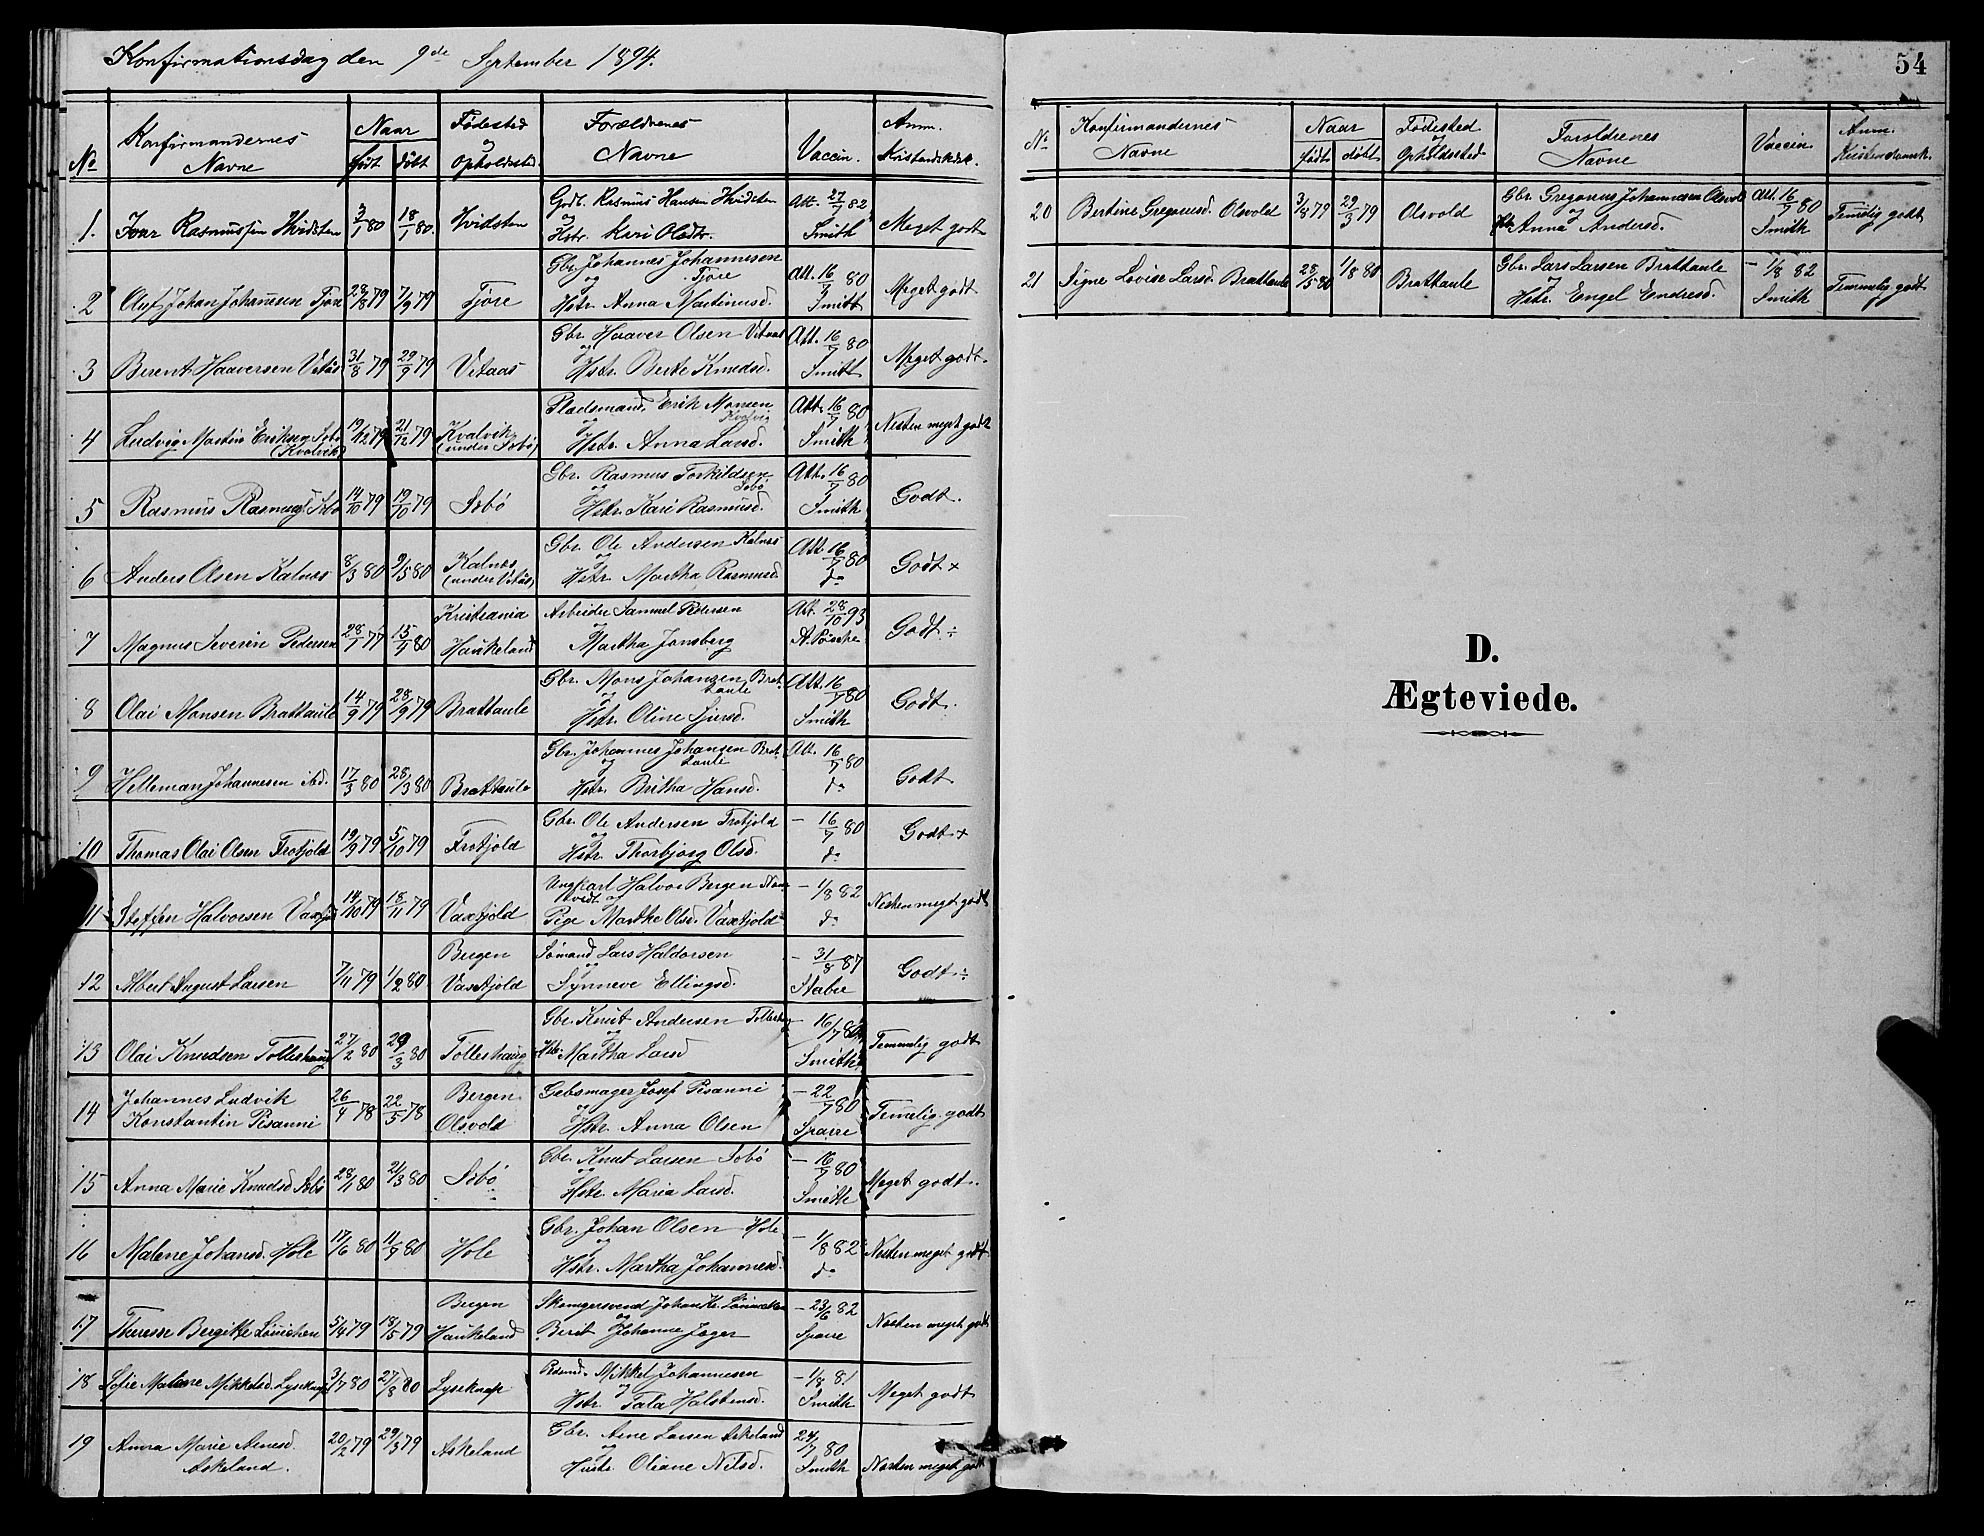 Konfirmationsdag den 9de September 1894.
No Konfirmandernes Navne Naar født døbt Fødested og Opholdssted Forældrenes Navne Vaccin. Anm. Kristendskdsk.
1. Ivar Rasmussen Hvidsten 3/1 80 18/1 80. Hvidsten Gbr. Rasmus Hansen Hvidsten og Hstr. Kari Olsdtr. Att. 27/7 82 Smith Meget godt
2 Oluf Johan Johannesen Tjøre 28/8 79 7/9 79 Tjøre Gbr. Johannes Johannesen Tjøre og Hstr. Anna Martinusd. Att. 16/7 80 Smith Meget godt
3 Berent Haaversen Vetås 31/8 79 29/9 79 Vetaas Gbr. Haaver Olsen Vetaas og Hstr. Berte Knudsd. Att. 16/7 80 Smith Meget godt.
4 Ludvig Martin Eriksen Søbø (Kvalvik) 19/12 79 21/12 79 Kvalvik (under Søbø) Pladsmand Erik Monsen Kvalvig og Hstr. Anna Larsd. Att. 16/7 80 Smith Nesten meget godt
5 Rasmus Rasmuss. Søbø 14/10 79 19/10 79 Søbø Gbr. Rasmus Torkildsen Søbø og Hstr. Kari Rasmusd. Att. 16/7 80 Smith Godt.
6 Anders Olsen Kalnes 8/3 80 9/5 80 Kalnes (under Vetås) Gbr. Ole Andersen Kalnes og Hstr. Martha Rasmusd Att. 16/7 80 do Godt +
7 Magnus Severin Pedersen 28/7 77 15/7 80 Kristiania Haukeland Arbeider Samuel Pedersen og Martha Jonsberg Att. 28/10 93 Godt ÷
8 Olai Monsen Brattaule 14/9 79 28/9 79 Brattaule Gbr. Mons Johansen Brattaule og Hstr. Oline Sjursd. Att. 16/7 80 Smith Godt.
9 Helleman Johannesen ibd. 17/3 80 28/3 80 Brattaule Gbr. Johannes Johansen Brattaule og Hstr. Britha Hansd. Att. 16/7 80 do Godt
10 Thomas Olai Olsen Trotjold 19/9 79 5/10 79 Trotjold Gbr. Ole Andersen Trotjold og Hstr. Thorbjørg Olsd. – 16/7 80 do Godt +
11 Steffen Halvorsen 14/10 79 18/11 79 Vaxtjold Ungkarl Halvor Bergen og Pige Marthe Olsd. Vaxtjold – 1/8 82 do Nesten meget godt
12 Albert August Larsen 7/11 79 1/2 80 Bergen Vaxtjold Sømand Lars Haldorsen og Synneve Ellingsd. – 31/8 87 Godt ÷
13 Olai Knudsen Tolleshaug 27/2 80 29/3 80 Tolleshaug Gbr. Knut Andersen og Hstr. Martha Larsd – 16/7 80 Smith Temmelig godt
14 Johannes Ludvik Konstantin Pisanni 26/4 78 22/5 78 Bergen Olsvold Gibsmager Josef Pisanni og Hstr. Anna Olsen – 22/7 80 Sparre Temelig godt
15 Anna Marie Knudsd Søbø 28/1 80 21/3 80 Søbø Gbr. Knut Larsen Søbø og Hstr. Maria Larsd. – 16/7 80 Smith Meget godt.
16 Malene Johansd. Hole 17/6 80 11/7 80 Hole Gbr. Johan Olsen Hole og Hstr. Martha Johannesd. – 1/8 82 do Nesten meget godt
17 Therese Bergitte Lønichen 5/4 79 18/5 79 Bergen Haukeland og Berit Johanne Jæger – 23/6 82 Sparre Nesten meget godt
18 Sofie Malene Mikkelsd. Lyseknap 3/7 80 27/8 80 Lyseknap Mikkel Johannesen og Hstr. Tala Halstensd. – 1/8 81 Smith Meget godt
19 Anna Marie Arnesd. Askeland. 20/2 79 29/3 79 Askeland Gbr. Arne Larsen Askeland og Hustr. Oliane Nilsd. 24/7 80 Smith Nesten meget godt
54
No Konfirmandernes Navne Naar født døbt Fødested og Opholdssted Foreldrenes Navne Vaccin. Anm. Kristendomsk.
20 Bertine Gregoriusd. Olsvold 3/3 79 29/3 79 Olsvold Gbr. Gregorius Johannesen Olsvold og Hstr. Anna Andersd. Att. 16/7 80 Smith Temelig godt
21 Signe Lovise Larsd. Brattaule 23/5 80 1/8 80 Brattaule Gbr. Lars Larsen Brattaule og Hstr. Engel Endresd. – 1/8 82 Smith Temmelig godt
D.
Ægteviede.